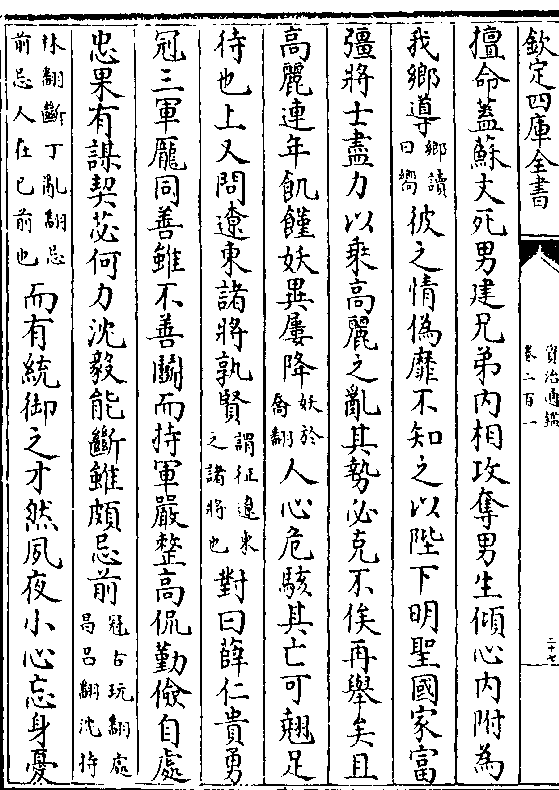 欽定四庫全書
資治通鑑
卷二百一
二十七
擅命蓋蘇文死男建兄弟内相攻奪男生傾心内附為
我鄉導鄉讀曰嚮彼之情偽靡不知之以陛下明聖國家富
彊將士盡力以乘高麗之亂其勢必克不俟再舉矣且
高麗連年飢饉妖異屢降妖於喬翻人心危駭其亡可翹足
待也上又問遼東諸將孰賢謂征遼東之諸將也對曰薛仁貴勇
冠三軍龎同善雖不善鬬而持軍嚴整高侃勤儉自處
忠果有謀契苾何力沈毅能斷雖頗忌前冠古玩翻處昌呂翻沈持
林翻斷丁亂翻忌前忌人在已前也而有統御之才然夙夜小心忘身憂